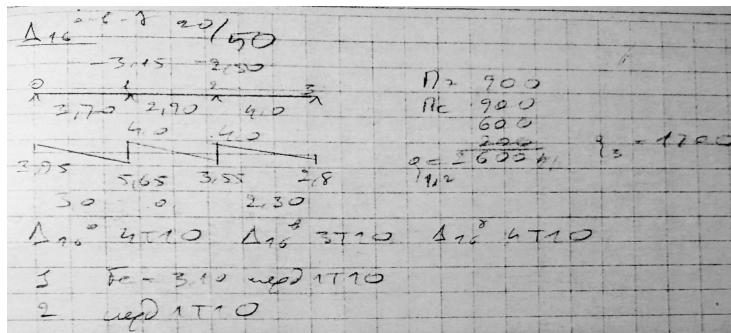 Δ16 а-б-в 20/50
-3,15 -2,50
0 1 2 3
2,70 2,90 4,0
4,0 4,0
3,95 5,65 3,55 2,8
30 0, 2,30
Пг 900
Пс 900
600
200
q1,2 = 2600 q3 = 1700
Δ16а 4T10 Δ16б 3T10 Δ16в 4T10
1 Fe = 3,10 1T10
2 1T10